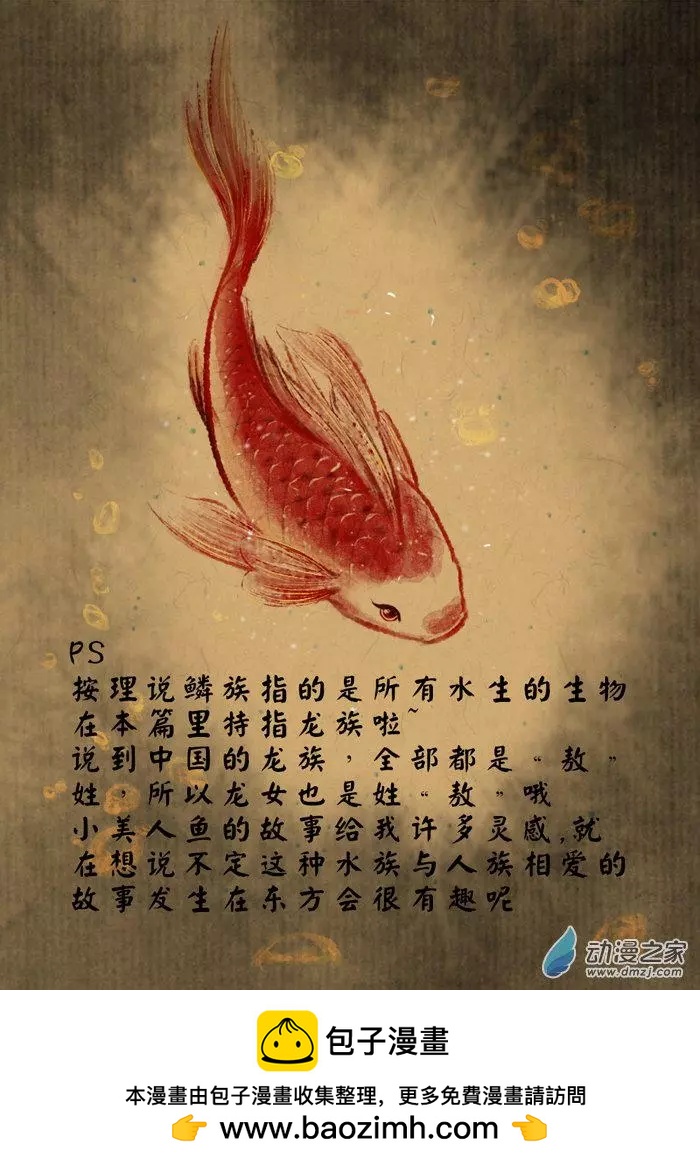 PS
按理说鳞族指的是所有水生的生物
在本篇里特指龙族啦~
说到中国的龙族，全部都是“敖”
姓，所以龙女也是姓“敖”哦
小美人鱼的故事给我许多灵感,就
在想说不定这种水族与人族相爱的
故事发生在东方会很有趣呢
动漫之家
www.dmzj.com
包子漫畫
本漫畫由包子漫畫收集整理，更多免費漫畫請訪問
👉 www.baozimh.com 👈